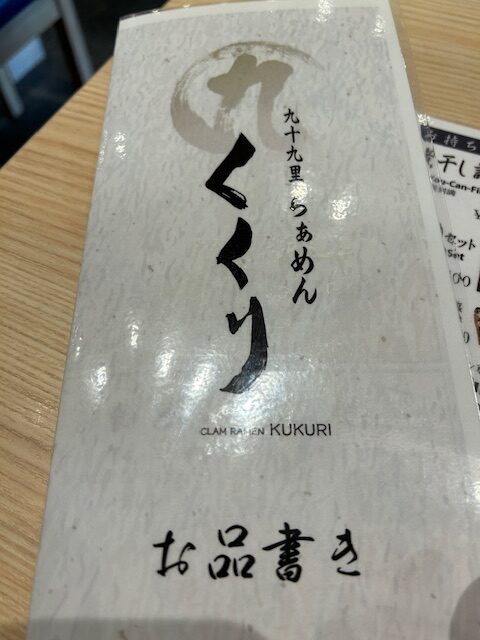 九
九十九里らぁめん
くくり
CLAM RAMEN KUKURI
お品書き
お持ち
干し
セット
Set